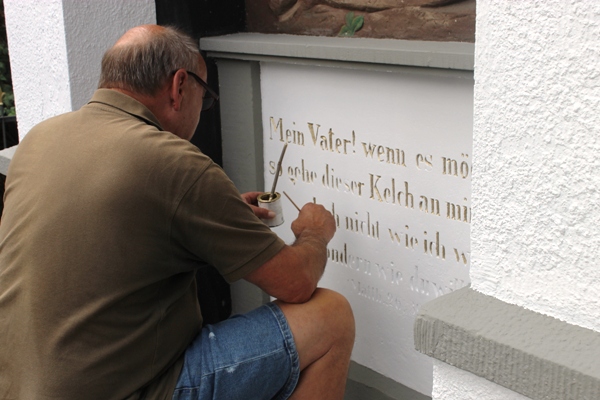 Mein Vater! wenn es mö
so gehe dieser Kelch an mi
nicht wie ich w
ondern wie du